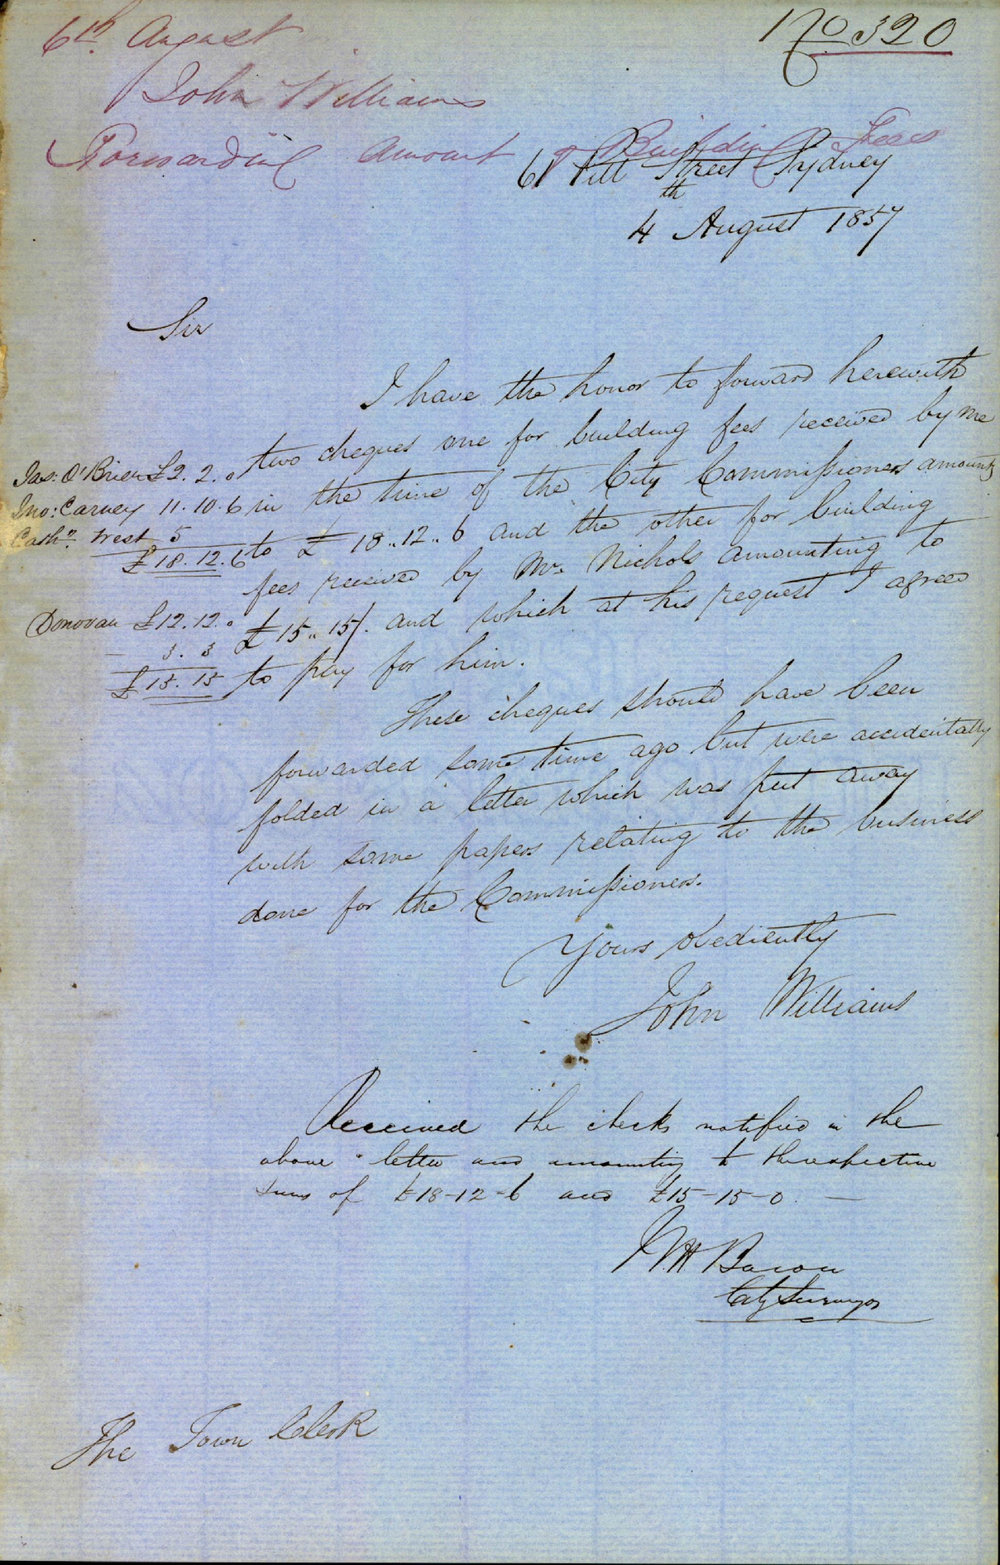 No 320
6th August
John Williams
Forwarding amount of Building Fees
61 Pitt Street Sydney
4th August 1857
Sir
I have the honor to forward herewith
two cheques one for building fees received by me
in the time of the City Commissioners amounts
to £18..12..6 and the other for building
fees received by Mr. Nichols amounting to
£15..15/. and which at his request I agreed
to pay for him.
Jas: O'Brien £2.2.0
Jno: Carney 11.10.6
Cashn. West 5
£18.12.6
Donovan £12.12.0
3.3
£15.15
These cheques should have been
forwarded some time ago but were accidentally
folded in a letter which was put away
with some papers relating to the business
done for the Commissioners.
Yours obediently
John Williams
Received the checks notified in the
above letter and amounting to the respective
sums of £18-12-6 and £15-15-0. —
Bacon
City Surveyor
The Town Clerk